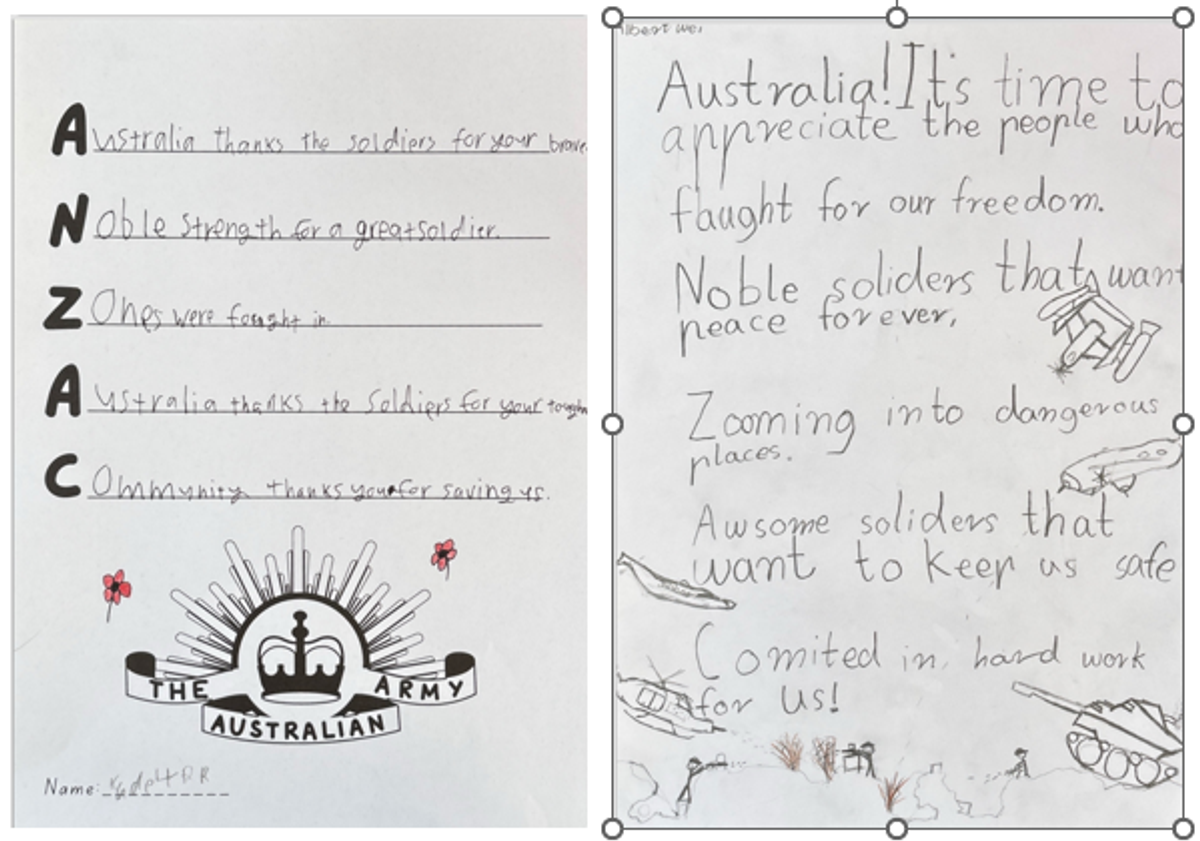 Australia thanks the soldiers for your brave
Noble strength for a great soldier.
Zones were fought in
Australia thanks the soldiers for your tough
Community thanks you for saving us.
THE ARMY
AUSTRALIAN
Name:
Australia! It's time to
appreciate the people who
faught for our freedom.
Noble soliders that want
peace forever,
Zooming into dangerous
places.
Awsome soliders that
want to keep us safe
Comited in hard work
for us!